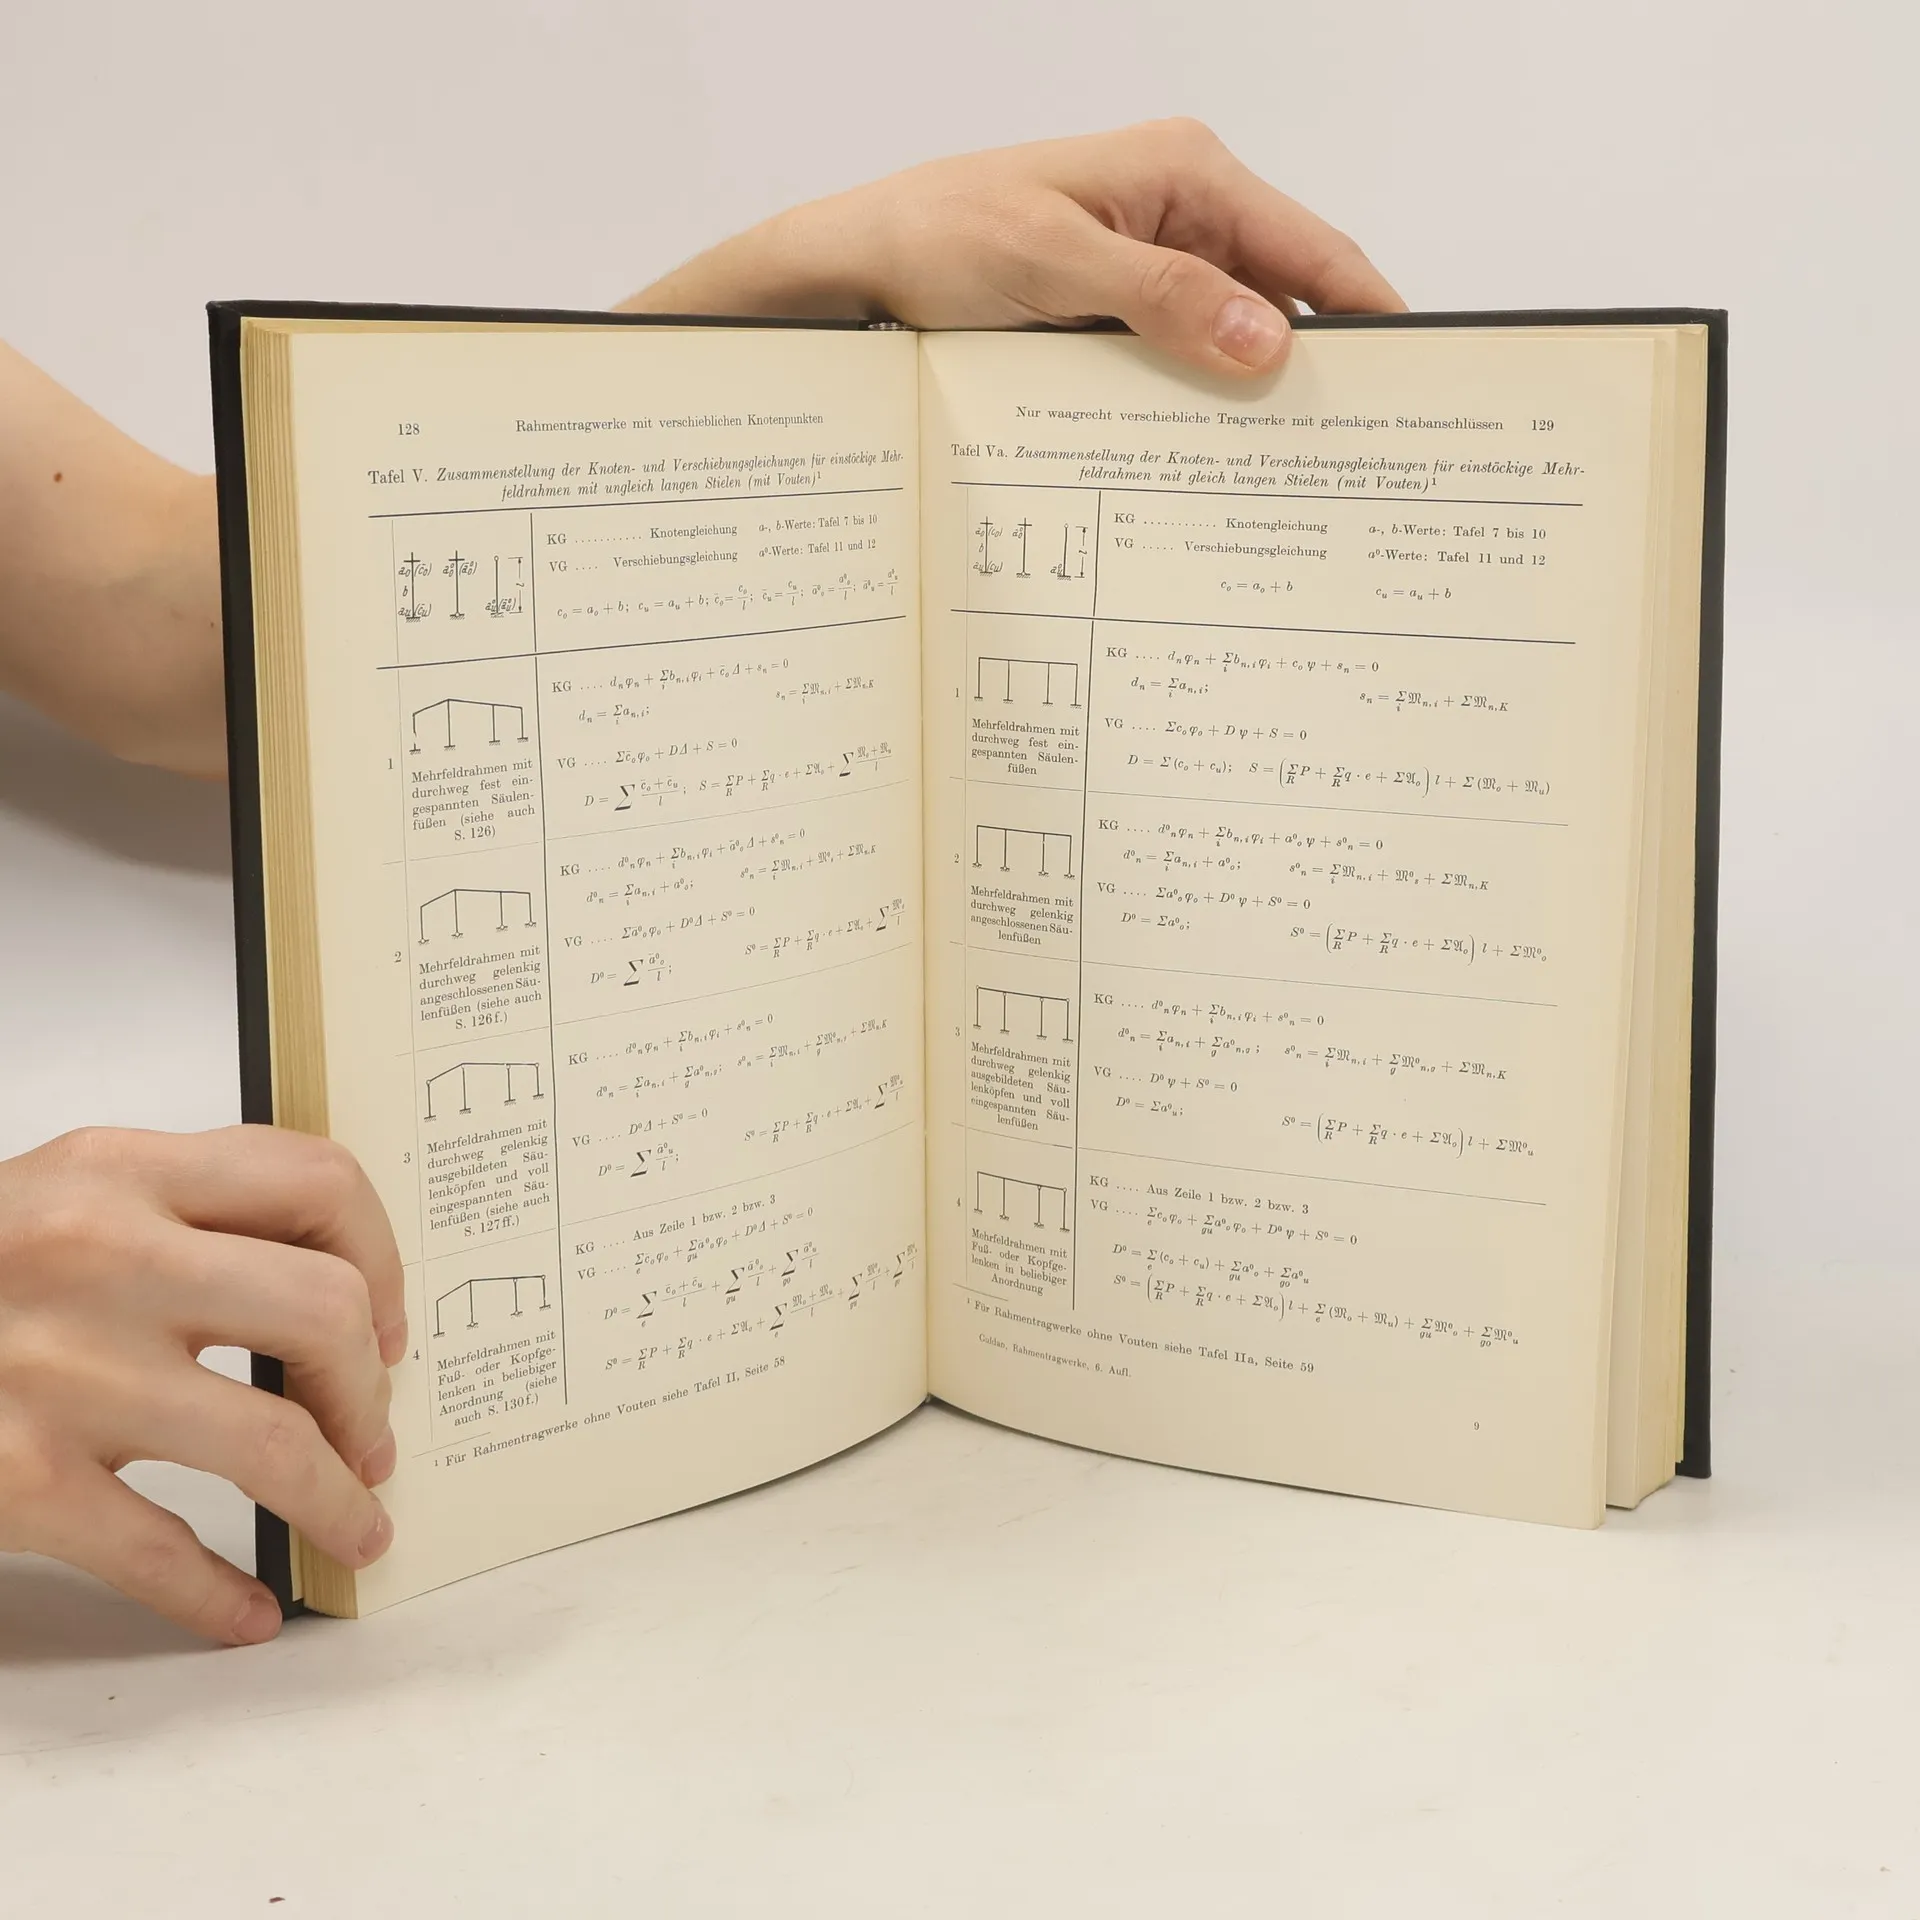 128 Rahmentragwerke mit verschieblichen Knotenpunkten
Tafel V. Zusammenstellung der Knoten- und Verschiebungsgleichungen für einstöckige Mehr-
feldrahmen mit ungleich langen Stielen (mit Vouten)¹
KG ........... Knotengleichung a-, b-Werte: Tafel 7 bis 10
VG .... Verschiebungsgleichung a⁰-Werte: Tafel 11 und 12
cₒ = aₒ + b; cᵤ = aᵤ + b; c̄ₒ = cₒ/l; c̄ᵤ = cᵤ/l; ā⁰ₒ = a⁰ₒ/l; ā⁰ᵤ = a⁰ᵤ/l
1
Mehrfeldrahmen mit
durchweg fest ein-
gespannten Säulen-
füßen (siehe auch
S. 126)
KG .... dₙφₙ + Σᵢbₙ,ᵢφᵢ + c̄ₒΔ + sₙ = 0
dₙ = Σᵢaₙ,ᵢ; sₙ = Σᵢ𝔐ₙ,ᵢ + Σ𝔐ₙ,K
VG .... Σc̄ₒφₒ + DΔ + S = 0
D = Σ (c̄ₒ + c̄ᵤ)/l; S = Σ_R P + Σ_R q · e + Σ𝔄ₒ + Σ (𝔐ₒ + 𝔐ᵤ)/l
2
Mehrfeldrahmen mit
durchweg gelenkig
angeschlossenen Säu-
lenfüßen (siehe auch
S. 126f.)
KG .... d⁰ₙφₙ + Σᵢbₙ,ᵢφᵢ + ā⁰ₒΔ + s⁰ₙ = 0
d⁰ₙ = Σᵢaₙ,ᵢ + a⁰ₒ; s⁰ₙ = Σᵢ𝔐ₙ,ᵢ + 𝔐⁰ₛ + Σ𝔐ₙ,K
VG .... Σā⁰ₒφₒ + D⁰Δ + S⁰ = 0
D⁰ = Σ ā⁰ₒ/l; S⁰ = Σ_R P + Σ_R q · e + Σ𝔄ₒ + Σ 𝔐⁰ₒ/l
3
Mehrfeldrahmen mit
durchweg gelenkig
ausgebildeten Säu-
lenköpfen und voll
eingespannten Säu-
lenfüßen (siehe auch
S. 127ff.)
KG .... d⁰ₙφₙ + Σᵢbₙ,ᵢφᵢ + s⁰ₙ = 0
d⁰ₙ = Σᵢaₙ,ᵢ + Σ_g a⁰ₙ,g; s⁰ₙ = Σᵢ𝔐ₙ,ᵢ + Σ_g 𝔐⁰ₙ,g + Σ𝔐ₙ,K
VG .... D⁰Δ + S⁰ = 0
D⁰ = Σ ā⁰ᵤ/l; S⁰ = Σ_R P + Σ_R q · e + Σ𝔄ₒ + Σ 𝔐⁰ᵤ/l
4
Mehrfeldrahmen mit
Fuß- oder Kopfge-
lenken in beliebiger
Anordnung (siehe
auch S. 130f.)
KG .... Aus Zeile 1 bzw. 2 bzw. 3
VG .... Σ_e c̄ₒφₒ + Σ_gu ā⁰ₒφₒ + D⁰Δ + S⁰ = 0
D⁰ = Σ_e (c̄ₒ + c̄ᵤ)/l + Σ_gu ā⁰ₒ/l + Σ_go ā⁰ᵤ/l
S⁰ = Σ_R P + Σ_R q · e + Σ𝔄ₒ + Σ_e (𝔐ₒ + 𝔐ᵤ)/l + Σ_gu 𝔐⁰ₒ/l + Σ_go
¹ Für Rahmentragwerke ohne Vouten siehe Tafel II, Seite 58
Nur waagrecht verschiebliche Tragwerke mit gelenkigen Stabanschlüssen 129
Tafel Va. Zusammenstellung der Knoten- und Verschiebungsgleichungen für einstöckige Mehr-
feldrahmen mit gleich langen Stielen (mit Vouten)¹
KG ........... Knotengleichung a-, b-Werte: Tafel 7 bis 10
VG ..... Verschiebungsgleichung a⁰-Werte: Tafel 11 und 12
cₒ = aₒ + b cᵤ = aᵤ + b
1
Mehrfeldrahmen mit
durchweg fest ein-
gespannten Säulen-
füßen
KG .... dₙφₙ + Σᵢbₙ,ᵢφᵢ + cₒψ + sₙ = 0
dₙ = Σᵢaₙ,ᵢ; sₙ = Σᵢ𝔐ₙ,ᵢ + Σ𝔐ₙ,K
VG .... Σcₒφₒ + Dψ + S = 0
D = Σ(cₒ + cᵤ); S = (Σ_R P + Σ_R q · e + Σ𝔄ₒ) l + Σ(𝔐ₒ + 𝔐ᵤ)
2
Mehrfeldrahmen mit
durchweg gelenkig
angeschlossenen Säu-
lenfüßen
KG .... d⁰ₙφₙ + Σᵢbₙ,ᵢφᵢ + a⁰ₒψ + s⁰ₙ = 0
d⁰ₙ = Σᵢaₙ,ᵢ + a⁰ₒ; s⁰ₙ = Σᵢ𝔐ₙ,ᵢ + 𝔐⁰ₛ + Σ𝔐ₙ,K
VG .... Σa⁰ₒφₒ + D⁰ψ + S⁰ = 0
D⁰ = Σa⁰ₒ; S⁰ = (Σ_R P + Σ_R q · e + Σ𝔄ₒ) l + Σ𝔐⁰ₒ
3
Mehrfeldrahmen mit
durchweg gelenkig
ausgebildeten Säu-
lenköpfen und voll
eingespannten Säu-
lenfüßen
KG .... d⁰ₙφₙ + Σᵢbₙ,ᵢφᵢ + s⁰ₙ = 0
d⁰ₙ = Σᵢaₙ,ᵢ + Σ_g a⁰ₙ,g; s⁰ₙ = Σᵢ𝔐ₙ,ᵢ + Σ_g 𝔐⁰ₙ,g + Σ𝔐ₙ,K
VG .... D⁰ψ + S⁰ = 0
D⁰ = Σa⁰ᵤ; S⁰ = (Σ_R P + Σ_R q · e + Σ𝔄ₒ) l + Σ𝔐⁰ᵤ
4
Mehrfeldrahmen mit
Fuß- oder Kopfge-
lenken in beliebiger
Anordnung
KG .... Aus Zeile 1 bzw. 2 bzw. 3
VG .... Σ_e cₒφₒ + Σ_gu a⁰ₒφₒ + D⁰ψ + S⁰ = 0
D⁰ = Σ_e (cₒ + cᵤ) + Σ_gu a⁰ₒ + Σ_go a⁰ᵤ
S⁰ = (Σ_R P + Σ_R q · e + Σ𝔄ₒ) l + Σ_e (𝔐ₒ + 𝔐ᵤ) + Σ_gu 𝔐⁰ₒ + Σ_go 𝔐⁰ᵤ
¹ Für Rahmentragwerke ohne Vouten siehe Tafel IIa, Seite 59
Guldan, Rahmentragwerke, 6. Aufl.
9